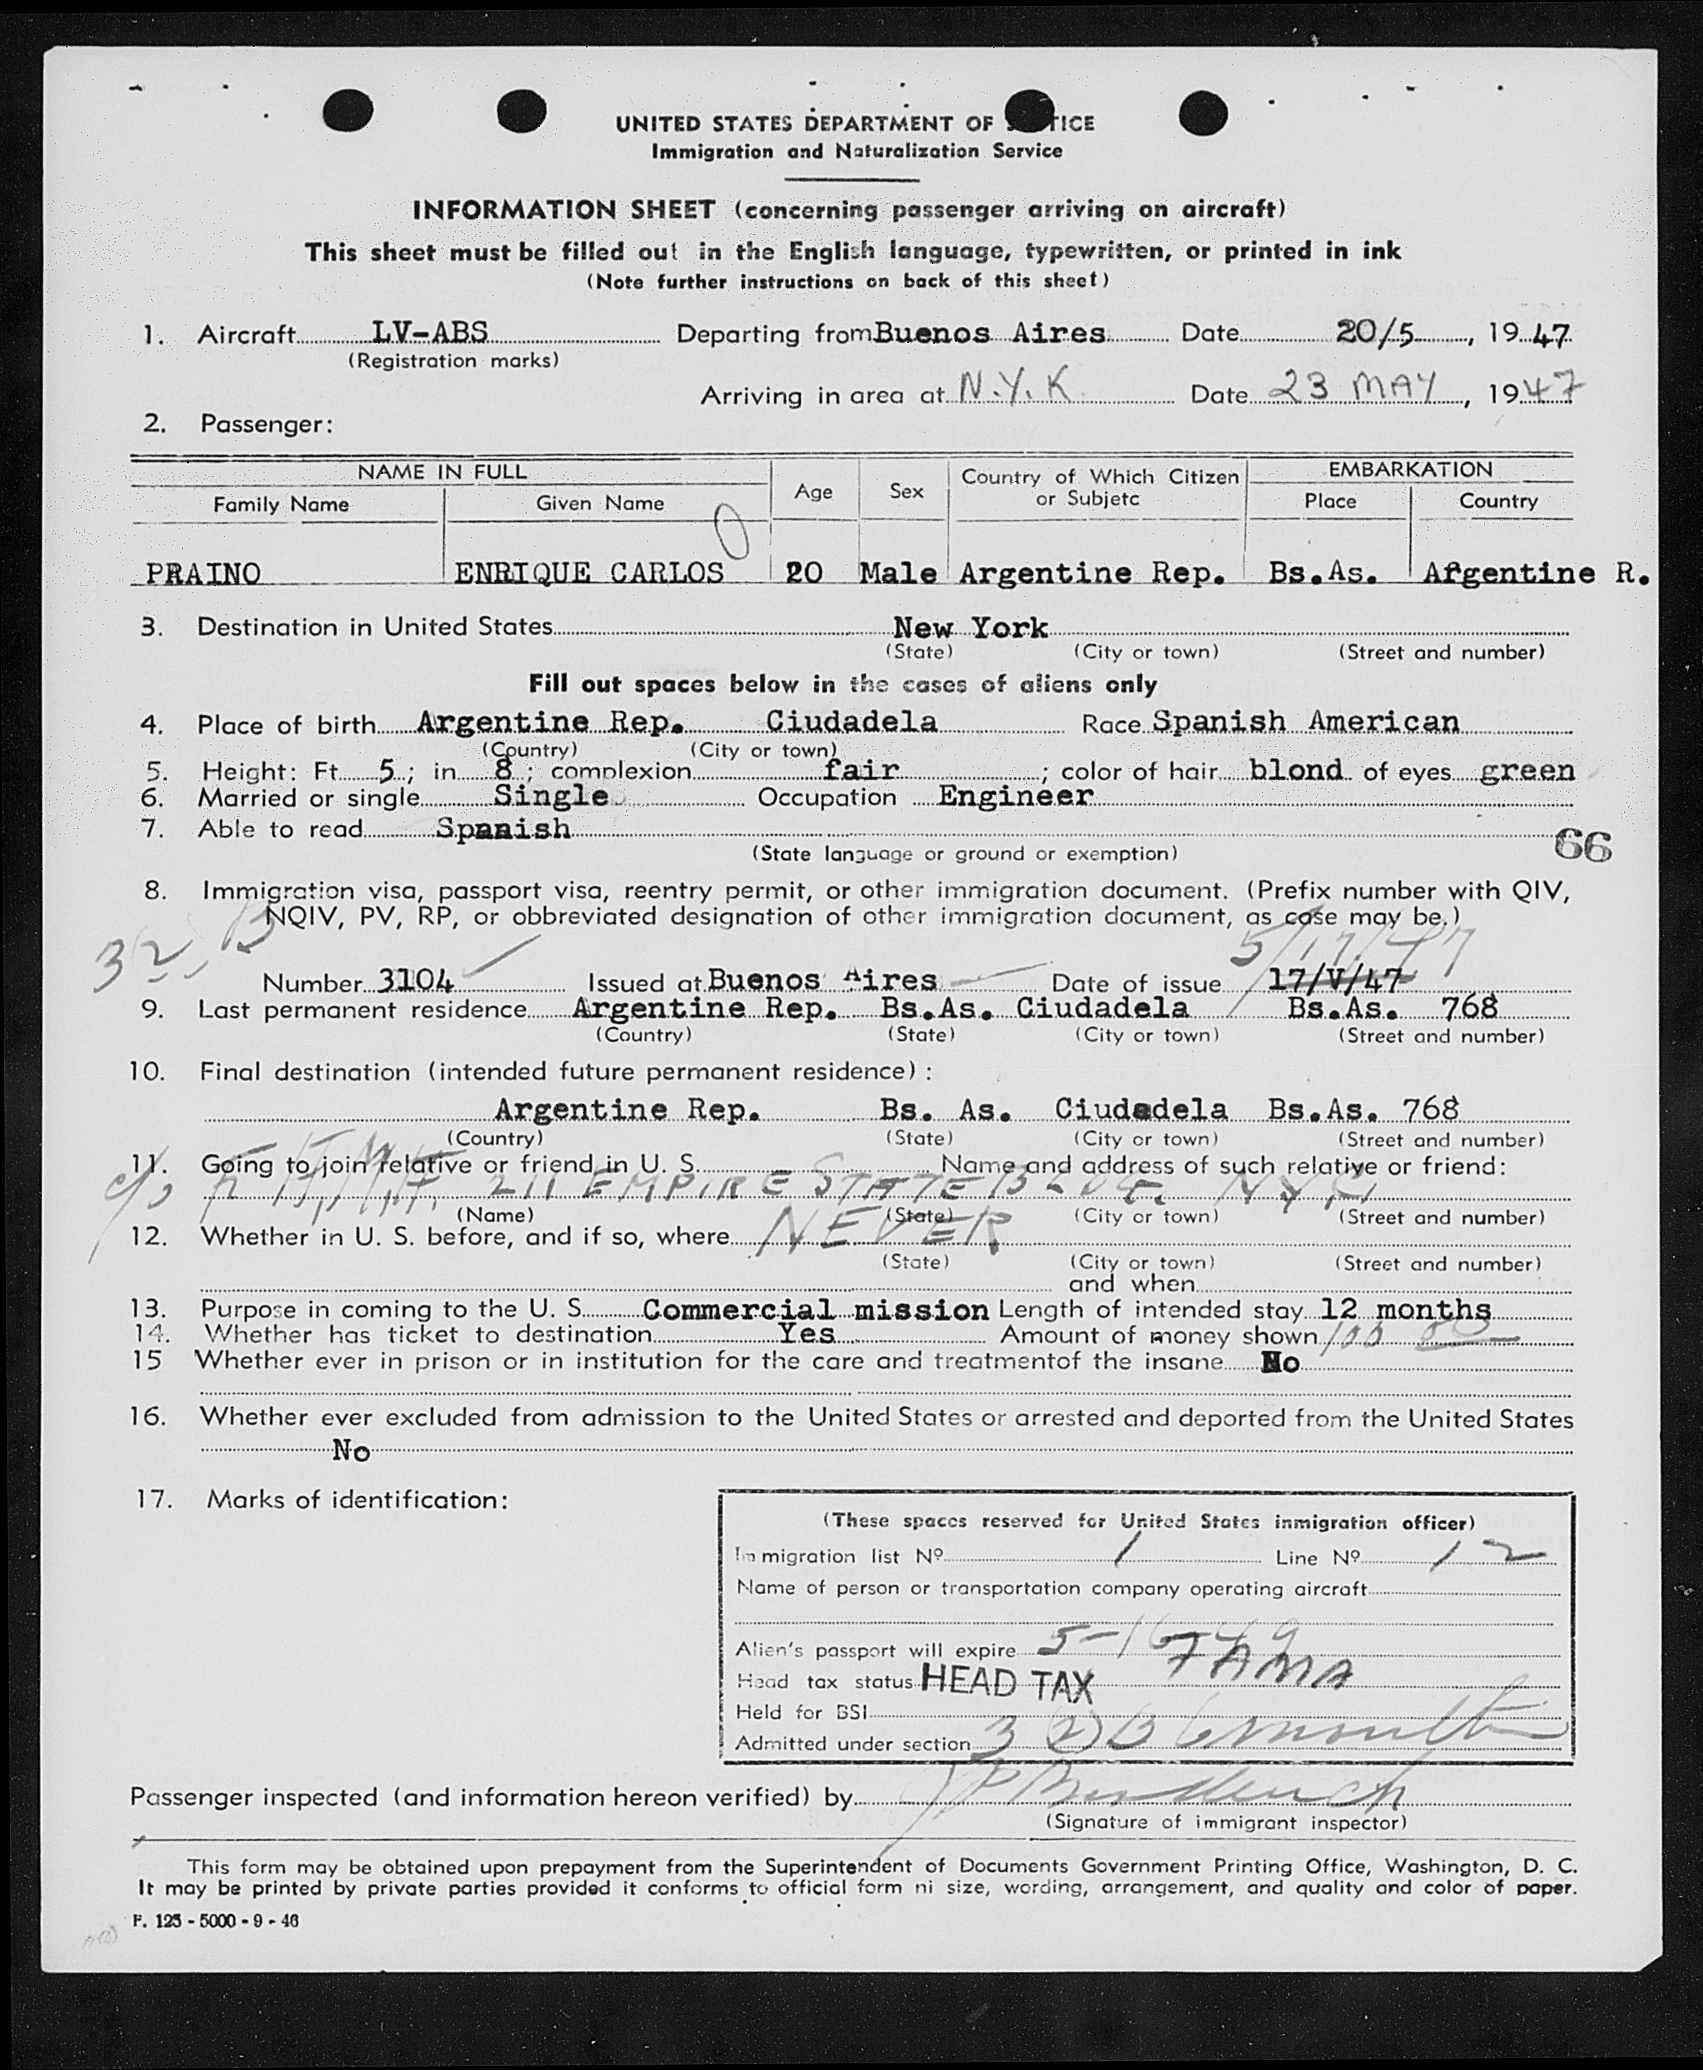 UNITED STATES DEPARTMENT OF TICE
Immigration and Naturalization Service
INFORMATION SHEET (concerning passenger arriving on aircraft)
This sheet must be filled out in the English language, typewritten, or printed in ink
(Note further instructions on back of this sheet)
1. Aircraft LV-ABS Departing from Buenos Aires Date 20/5, 19 47
(Registration marks)
Arriving in area at N.Y.K. Date 23 MAY, 1947
2. Passenger:
NAME IN FULL Age Sex Country of Which Citizen or Subjetc EMBARKATION
Family Name Given Name Place Country
PRAINO ENRIQUE CARLOS 20 Male Argentine Rep. Bs.As. Argentine R.
3. Destination in United States New York
(State) (City or town) (Street and number)
Fill out spaces below in the cases of aliens only
4. Place of birth Argentine Rep. Ciudadela Race Spanish American
(Country) (City or town)
5. Height: Ft. 5; in 8; complexion fair; color of hair blond of eyes green
6. Married or single Single Occupation Engineer
7. Able to read Spanish
(State language or ground or exemption) 66
8. Immigration visa, passport visa, reentry permit, or other immigration document. (Prefix number with QIV,
NQIV, PV, RP, or obbreviated designation of other immigration document, as case may be.)
32 B 5/17/47
Number 3104 Issued at Buenos Aires Date of issue 17/V/47
9. Last permanent residence Argentine Rep. Bs.As. Ciudadela Bs.As. 768
(Country) (State) (City or town) (Street and number)
10. Final destination (intended future permanent residence):
Argentine Rep. Bs. As. Ciudadela Bs.As. 768
(Country) (State) (City or town) (Street and number)
11. Going to join relative or friend in U. S. Name and address of such relative or friend:
c/o 211 EMPIRE STATE BLDG. N.Y.C.
(Name) (State) (City or town) (Street and number)
12. Whether in U. S. before, and if so, where NEVER
(State) (City or town) (Street and number)
and when
13. Purpose in coming to the U. S. Commercial mission Length of intended stay 12 months
14. Whether has ticket to destination Yes Amount of money shown 100 00
15 Whether ever in prison or in institution for the care and treatmentof the insane No
16. Whether ever excluded from admission to the United States or arrested and deported from the United States
No
17. Marks of identification:
(These spaces reserved for United States inmigration officer)
Immigration list Nº 1 Line Nº 12
Name of person or transportation company operating aircraft
FAMA
Alien's passport will expire 5-16-49
Head tax status HEAD TAX
Held for BSI
Admitted under section 3 (2) B 6 months
Passenger inspected (and information hereon verified) by
(Signature of immigrant inspector)
This form may be obtained upon prepayment from the Superintendent of Documents Government Printing Office, Washington, D. C.
It may be printed by private parties provided it conforms to official form ni size, wording, arrangement, and quality and color of paper.
F. 125 - 5000 - 9 - 46